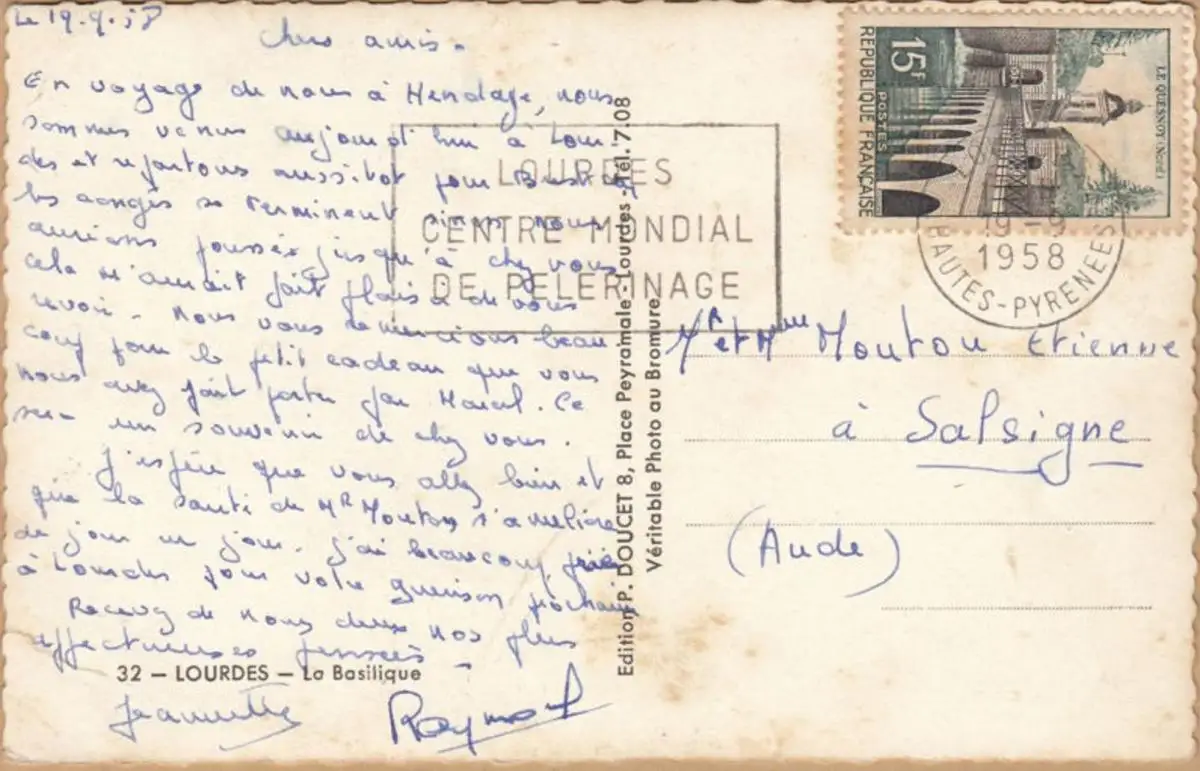 Le 19.9.58
Chers amis -
En voyage de noces à Hendaye, nous
sommes venus aujourd'hui à Lour-
des et repartons aussitot pour
les congés se terminent sinon nous
aurions poussés jusqu'à chez vous
cela m'aurait fait plaisir de vous
revoir. Nous vous remercions beau
coup pour le petit cadeau que vous
nous avez fait porter par Marcel. Ce
sera un souvenir de chez vous.
J'espère que vous allez bien et
que la santé de Mr Mouton s'améliore
de jour en jour. J'ai beaucoup prié
à Lourdes pour votre guérison prochaine
Recevez de nous deux nos plus
affectueuses pensées -
Jeannette
Raymond
32 — LOURDES — La Basilique
LOURDES
CENTRE MONDIAL
DE PELERINAGE
Edition P. DOUCET 8, Place Peyramale - Lourdes - Tél. 7.08
Véritable Photo au Bromure
15F
POSTES
REPUBLIQUE FRANÇAISE
LE QUESNOY (Nord)
19-9
1958
HAUTES-PYRENEES
Mr et Mme Mouton Etienne
à Salsigne
(Aude)